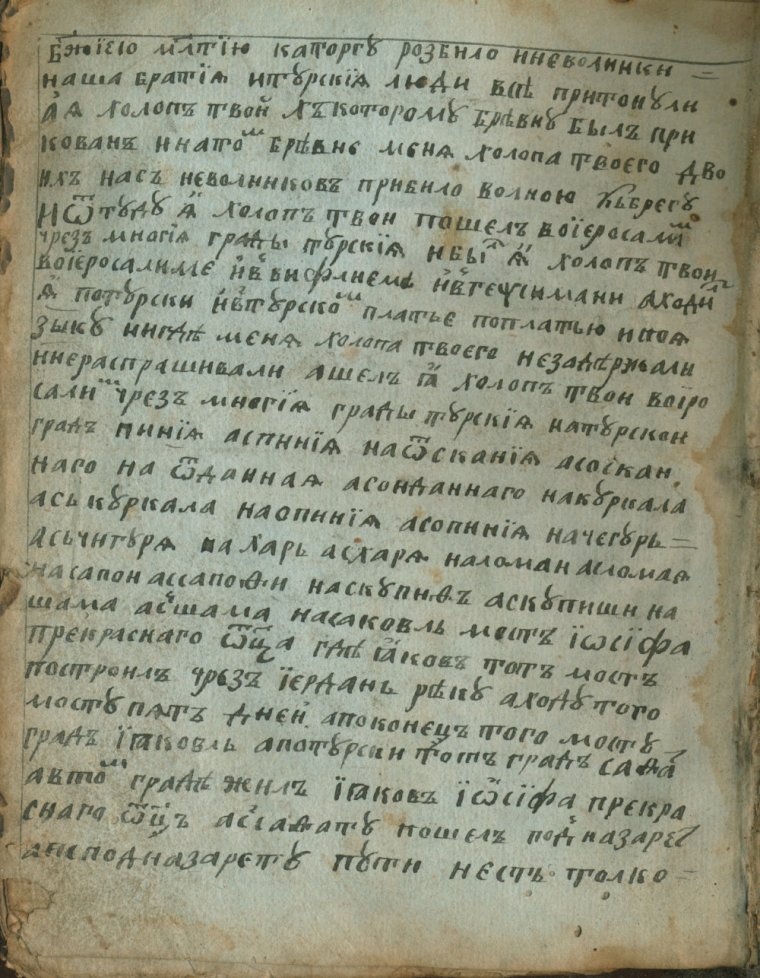 бж҃їею млтїю каторгу розбило ииеволники =
наша братїѧ итурскїѧ люди всѣ притонули
аѧ холопъ твой хъкоторому брѣвну былъ при
кованъ инатомъ брѣвне меня холопа твоего дво
ихъ насъ неволниковъ прибило волною къбрегу
иѿтуду ѧ холопъ твои пошелъ воїеросалим
чрезъ многїѧ грады турскїѧ ибы ѧ холопъ твои
воїеросалиме ивъвифлиеме ивъгеѱсимани аходил
ѧ потурски ивтурском платье поплатью ипоѧ
зыку нигдѣ менѧ холопа твоего незадержали
инераспрашивали ашелъ ѧ холопъ твои воїро
салим чрезъ многїѧ грады турскїѧ натурскои
градъ пинїѧ аспинїѧ наѿсканїѧ асоискан
наго на ѿданнаѧ асоиданнаго накуркала
аськуркала наопинїѧ асопинїѧ начегуръ =
асьчигурѧ на харь асхарѧналоман асломаѧ
насапон ассапоѳи наскупиѳъ аскупиши на
шама асшама насаковль мостъ їѡсїфа
прекраснаго ѿца гдѣ їаковъ тотъ мостъ
построилъ чрезъ їердань рѣку аходу того
мосту пятъ дней апоконецъ того мосту
градъ їꙗковль апотурски тотъ градъ саѳа
автом градѣ жилъ їꙗковъ їѡсїфа прекра
снаго ѿцъ асїаѳату пошелъ под назарет
аисподназарету пути несть толко =